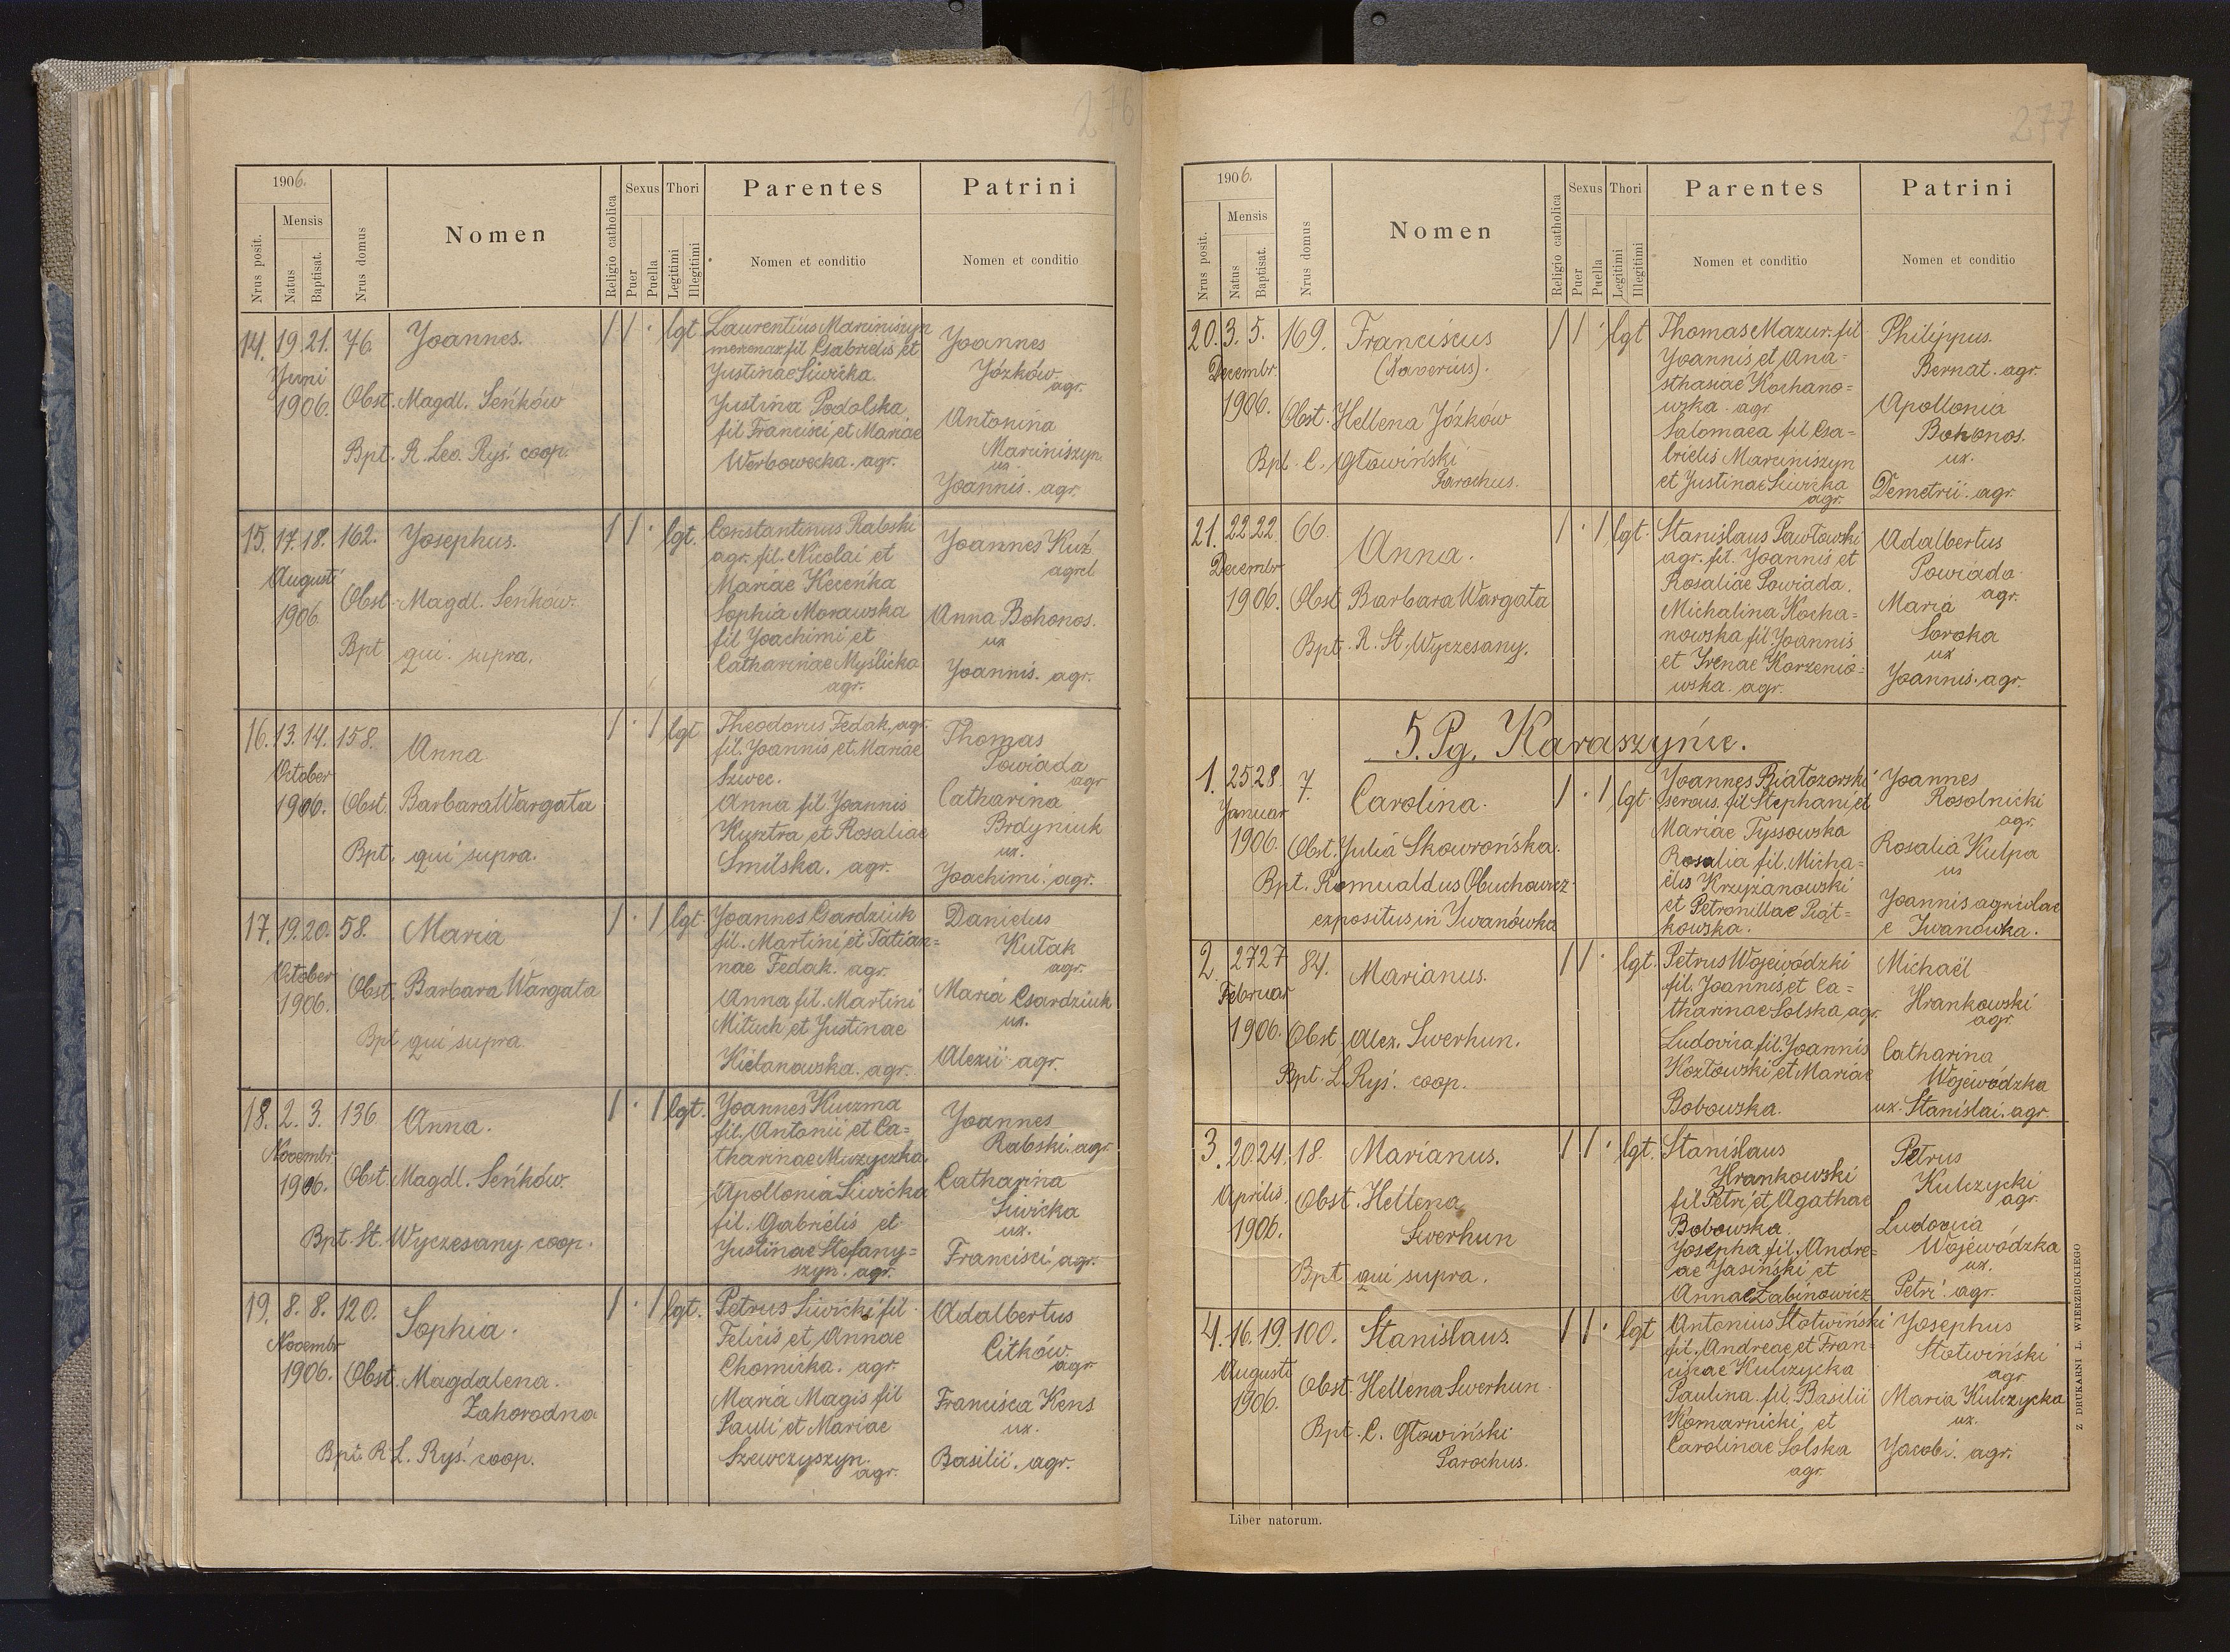 276
1906.
Nrus posit.
Mensis
Natus
Baptisat.
Nrus domus
Nomen
Religio catholica
Sexus
Puer
Puella
Thori
Legitimi
Illegitimi
Parentes
Nomen et conditio
Patrini
Nomen et conditio
14. 19. 21. 76. Joannes. / / · lgt
Juni
1906.
Obst. Magdl. Seńków
Bpt. R. Leo. Ryś. coop.
Laurentius Marciniszyn
fil Gabrielis et
Justinae Siwicka.
Justina Podolska
fil Francisci et Mariae
Werbowecka. agr.
Joannes
Józków
agr.
Antonina
Marciniszyn
ux.
Joannis. agr.
15. 17. 18. 162. Josephus. / / · lgt.
Augusti
1906.
Obst. Magdl. Seńków.
Bpt qui supra.
Constantinus Rabski
agr. fil. Nicolai et
Mariae Keceńka
Sophia Morawska
fil Joachimi et
Catharinae Myślicka
agr.
Joannes Kuź
Anna Bohonos.
ux
Joannis. agr.
16. 13. 14. 158. Anna / · / lgt
October
1906.
Obst. Barbara Wargata
Bpt. qui supra.
Theodorus Fedak. agr.
fil. Joannis et Mariae
Szwec.
Anna fil. Joannis
Kusztra et Rosaliae
Smilska. agr.
Thomas
Powiada
agr
Catharina
Brdyniuk
ux.
Joachimi. agr.
17. 19. 20. 58. Maria / · / lgt.
October
1906.
Obst. Barbara Wargata
Bpt qui supra.
Joannes Gardziuk
fil. Martini et Tatian=
nae Fedak. agr.
Anna fil. Martini
Mituch et Justinae
Kielanowska. agr.
Danielus
Kutak
agr.
Maria Gsardziuk
ux.
Alexii agr.
18. 2. 3. 136 Anna. / · / lgt.
Novembr
1906.
Obst. Magdl. Seńków.
Bpt. St. Wyczesany coop.
Joannes Kuzma
fil. Antonii et Ca=
tharinae Muzyczka.
Apollonia Siwicka
fil. Gabrielis et
Justinae Stefany=
szyn. agr.
Joannes
Rabski. agr
Catharina
Siwicka
ux.
Francisci. agr.
19. 8. 8. 120. Sophia. / · / lgt.
Novembr
1906.
Obst. Magdalena.
Zahorodna
Bpt. R L. Ryś. coop.
Petrus Siwicki fil.
Felicis et Annae
Chomicka. agr.
Maria Magis fil
Pauli et Mariae
Szewczyszyn.
agr.
Adalbertus
Citków.
agr
Francisca Kens
ux.
Basilii. agr.
277
1906.
Nrus posit.
Mensis
Natus
Baptisat.
Nrus domus
Nomen
Religio catholica
Sexus
Puer
Puella
Thori
Legitimi
Illegitimi
Parentes
Nomen et conditio
Patrini
Nomen et conditio
20. 3. 5. 169. Franciscus / / · lgt
(Xaverius).
Decembr.
1906.
Obst. Hellena Józków
Bpt. C. Głowiński
Parochus.
Thomas Mazur. fil
Joannis et Ana=
sthasiae Kochano=
wska. agr
Salomaea fil Gsa=
brielis Marciniszyn
et Justinae Siwicka
agr.
Philippus.
Bernat. agr.
Apollonia
Bohonos.
ux.
Demetrii. agr.
21. 22 22. 66. Anna. / · / lgt.
Decembr
1906.
Obst Barbara Wargata
Bpt. R. St. Wyczesany.
Stanislaus Pawłowski
agr. fil. Joannis et
Rosaliae Powiada.
Michalina Kocha=
nowska fil Joannis
et Irenae Korzenio=
wska. agr.
Adalbertus
Powiada
agr.
Maria
Soroka
ux
Joannis. agr.
5. Pg. Karaszyńce.
1. 25 28. 7. Carolina. / · / lgt.
Januar
1906.
Obst. Julia Skowrońska.
Bpt. Romualdus Obuchowicz
expositus in Iwanówka
Joannes Białozorski
fil Stephani et
Mariae Tyssowska
Rosalia fil. Micha=
ëlis Krzyżanowski
et Petronillae Piąt=
kowska.
Joannes
Rosolnicki
agr.
Rosalia Kulpa
ux
Joannis agricolae
e Iwanówka.
2. 27 27 84. Marianus. / / · lgt.
Februar
1906.
Obst Alex. Swerhun.
Bpt. L. Ryś. coop.
Petrus Wojewódzki
fil. Joannis et Ca=
tharinae Solska agr.
Ludovica fil. Joannis
Kozłowski et Mariae
Bobowska.
Michaël
Hrankowski
agr.
Catharina
Wojewódzka
ux. Stanislai. agr.
3. 20 24. 18. Marianus. / / · lgt.
Aprilis
1906.
Obst. Hellena
Swerhun
Bpt qui supra.
Stanislaus
Hrankowski
fil Petri et Agathae
Bobowska.
Josepha fil. Andre=
ae Jasiński et
Annae Łabinowicz
Petrus
Kulczycki
agr.
Ludovica
Wojewódzka
ux.
Petri. agr.
4. 16. 19. 100. Stanislaus. / / · lgt
Augusti
1906.
Obst. Hellena Swerhun.
Bpt. C. Głowiński
Parochus.
Antonius Słotwiński
fil. Andreae et Fran=
ciscae Kulczycka
Paulina. fil. Basilii
Komarnicki et
Carolinae Solska
agr.
Josephus
Słotwiński
agr
Maria Kulczycka
ux.
Jacobi. agr.
Liber natorum.
Z DRUKARNI L. WIERZBICKIEGO